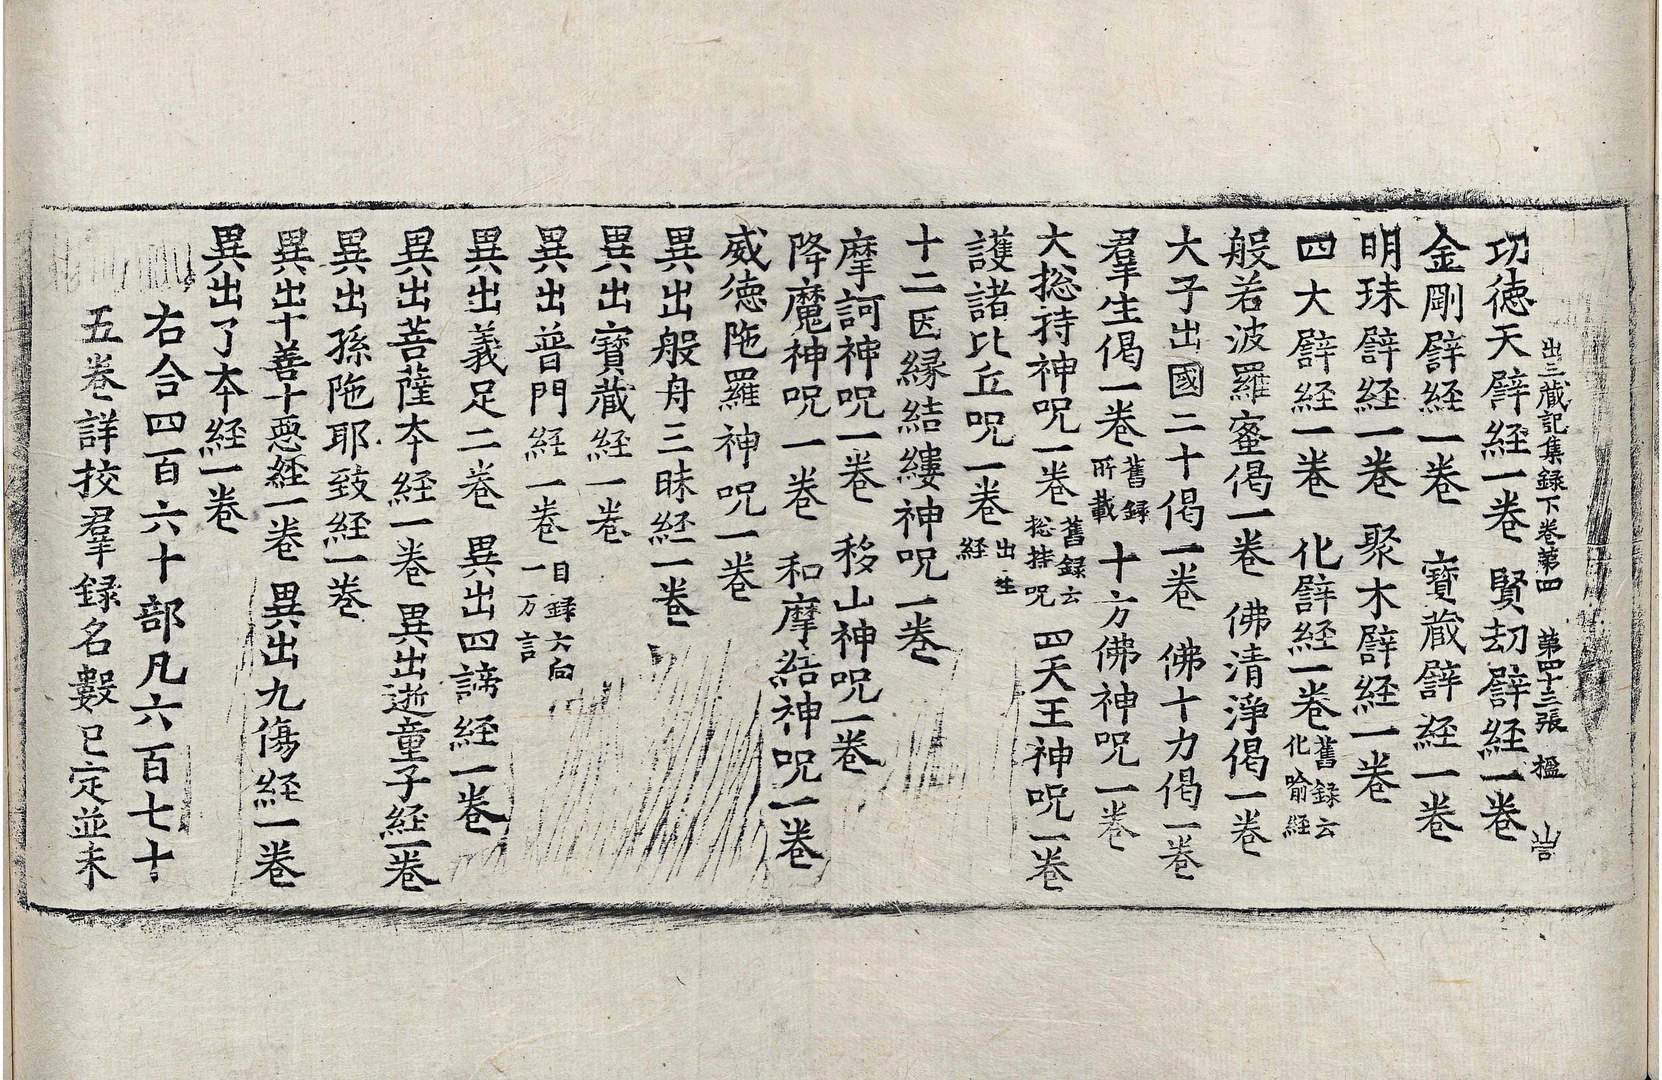 出三蔵記集録下卷苐四　苐四十三張　楹
功德天譬経一卷　賢刧譬経一卷
金剛譬経一卷　寶蔵譬経一卷
明珠譬経一卷　聚木譬経一卷
四大譬経一卷　化譬経一卷舊録云化喻経
般若波羅蜜偈一卷　佛清淨偈一卷
大子出國二十偈一卷　佛十力偈一卷
羣生偈一卷舊録所載　十方佛神呪一卷
大捴持神呪一卷舊録云捴持呪　四天王神呪一卷
護諸比丘呪一卷出生経
十二因縁結縷神呪一卷
摩訶神呪一卷　移山神呪一卷
降魔神呪一卷　和摩結神呪一卷
威德陁羅神呪一卷
異出般舟三昧経一卷
異出寶蔵経一卷
異出普門経一卷目録六向一万言
異出義足二卷　異出四諦経一卷
異出菩薩夲経一卷　異出逝童子経一卷
異出孫陁耶致経一卷
異出十善十惡経一卷　異出九傷経一卷
異出了夲経一卷
右合四百六十部凡六百七十
五卷詳挍羣録名數已定並未